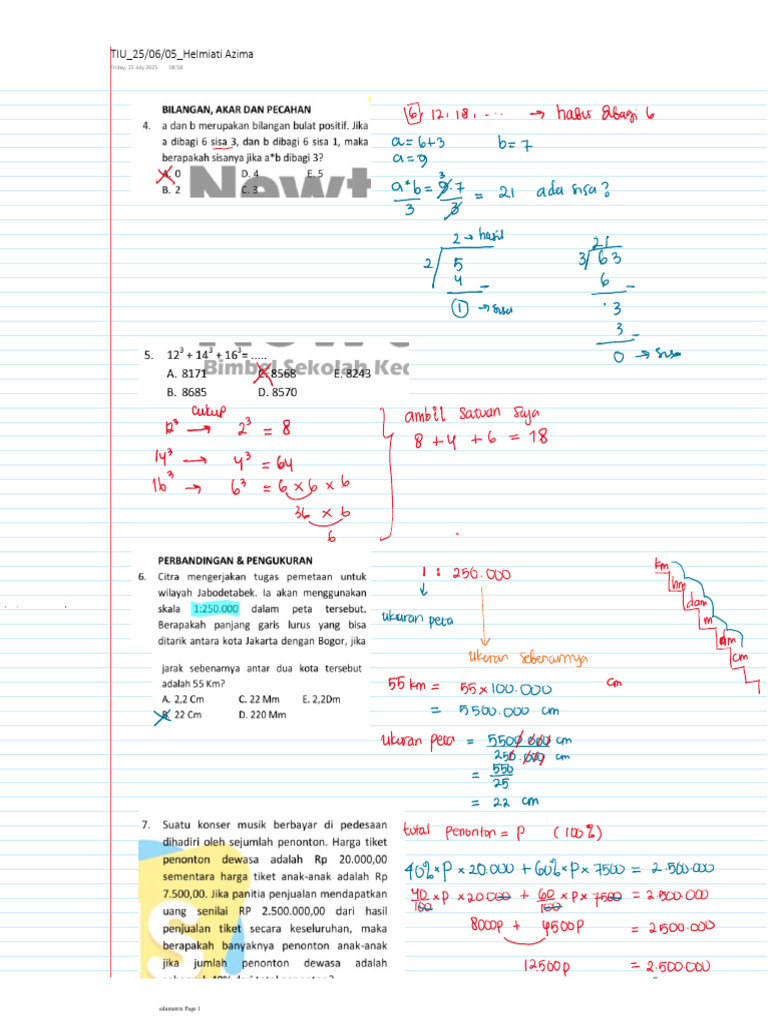 TIU_25/06/05_Helmiati Azima
Friday, 25 July 2025 08:58
BILANGAN, AKAR DAN PECAHAN
4. a dan b merupakan bilangan bulat positif. Jika
a dibagi 6 sisa 3, dan b dibagi 6 sisa 1, maka
berapakah sisanya jika a*b dibagi 3?
A. 0 D. 4 E. 5
B. 2 C. 3
Newt
6, 12, 18, ... → habis dibagi 6
a = 6+3 b = 7
a = 9
a*b/3 = 9.7/3 = 21 ada sisa?
3
2 → hasil
2 / 5
4 _
1 → sisa
21
3 / 63
6 _
. 3
3 _
0 → sisa
5. 12³ + 14³ + 16³= .....
A. 8171 C. 8568 E. 8243
B. 8685 D. 8570
Bimbel Sekolah Ked
cukup
12³ → 2³ = 8
14³ → 4³ = 64
16³ → 6³ = 6 × 6 × 6
36 × 6
6
ambil satuan saja
8 + 4 + 6 = 18
PERBANDINGAN & PENGUKURAN
6. Citra mengerjakan tugas pemetaan untuk
wilayah Jabodetabek. Ia akan menggunakan
skala 1:250.000 dalam peta tersebut.
Berapakah panjang garis lurus yang bisa
ditarik antara kota Jakarta dengan Bogor, jika
jarak sebenarnya antar dua kota tersebut
adalah 55 Km?
A. 2,2 Cm C. 22 Mm E. 2,2Dm
B. 22 Cm D. 220 Mm
1 : 250.000
ukuran peta
ukuran sebenarnya
km
hm
dam
m
dm
cm
55 km = 55 × 100.000 cm
= 5500.000 cm
ukuran peta = 5500.000 cm / 250.000 cm
= 550/25
= 22 cm
7. Suatu konser musik berbayar di pedesaan
dihadiri oleh sejumlah penonton. Harga tiket
penonton dewasa adalah Rp 20.000,00
sementara harga tiket anak-anak adalah Rp
7.500,00. Jika panitia penjualan mendapatkan
uang senilai RP 2.500.000,00 dari hasil
penjualan tiket secara keseluruhan, maka
berapakah banyaknya penonton anak-anak
jika jumlah penonton dewasa adalah
total penonton = P (100%)
40% × P × 20.000 + 60% × P × 7500 = 2.500.000
40/100 × P × 20000 + 60/100 × P × 7500 = 2.500.000
8000p + 4500p = 2500.000
12.500p = 2.500.000
edumatrix Page 1